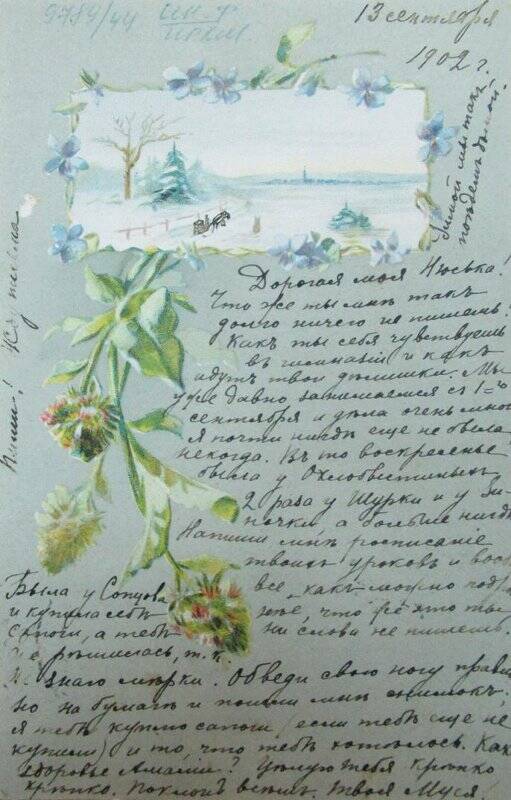 9789/44
13 сентября
1902 г.
Зимой мы такъ
поѣдемъ домой.
Дорогая моя Нюська!
Что же ты мнѣ такъ
долго ничего не пишешь?
Какъ ты себя чувствуешь
въ гимназіи и какъ
идутъ твои дѣлишки. Мы
уже давно занимаемся съ 1=го
сентября и дѣла очень много
я почти нигдѣ еще не была
некогда. Въ то воскресенье
была у
2 раза у Шурки и у Зи-
ночки, а больше нигдѣ
Напиши мнѣ росписаніе
твоихъ уроковъ и вооб
все, какъ можно подр
нѣе, что же это ты
ни слова не пишешь.
Была у
и купила себѣ
сапоги, а тебѣ
не рѣшилась, т. к.
не знаю мѣрки. Обведи свою ногу прави
но на бумагѣ и пошли мнѣ снимокъ
я тебѣ куплю сапоги (если тебѣ еще не
купили) и то, что тебѣ хотѣлось. Какъ
здоровье Амаліи? Цѣлую тебя крѣпко
крѣпко. Поклонъ всѣмъ. Твоя Муся.
Пиши! Жду письма